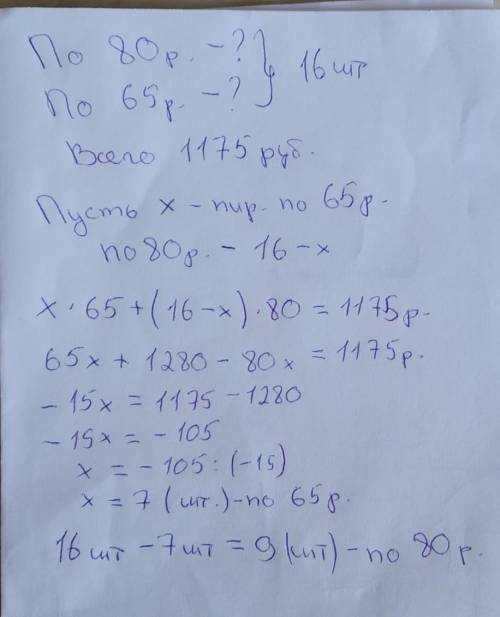 По 80р. - ? } 16 шт
По 65р. - ?
Всего 1175 руб.
Пусть x - пир. по 65р.
по 80р. - 16 - x
x · 65 + (16 - x) · 80 = 1175р.
65x + 1280 - 80x = 1175р.
- 15x = 1175 - 1280
- 15x = - 105
x = - 105 : (-15)
x = 7 (шт.) - по 65р.
16 шт - 7 шт = 9 (шт) - по 80р.